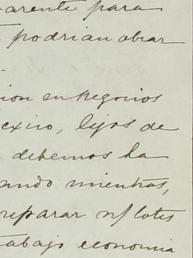 arente para
podrian obrar
ion en Negocios
exico, lejos de
debemos ha
ando mientras,
reparar n/ lotes
abajo economia